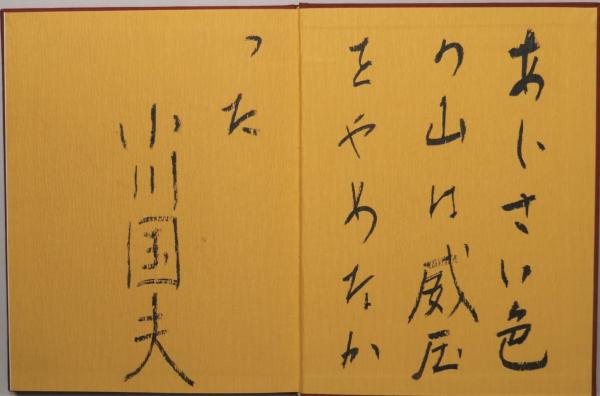 あじさい色
の山は威圧
をやめなか
った
小川国夫